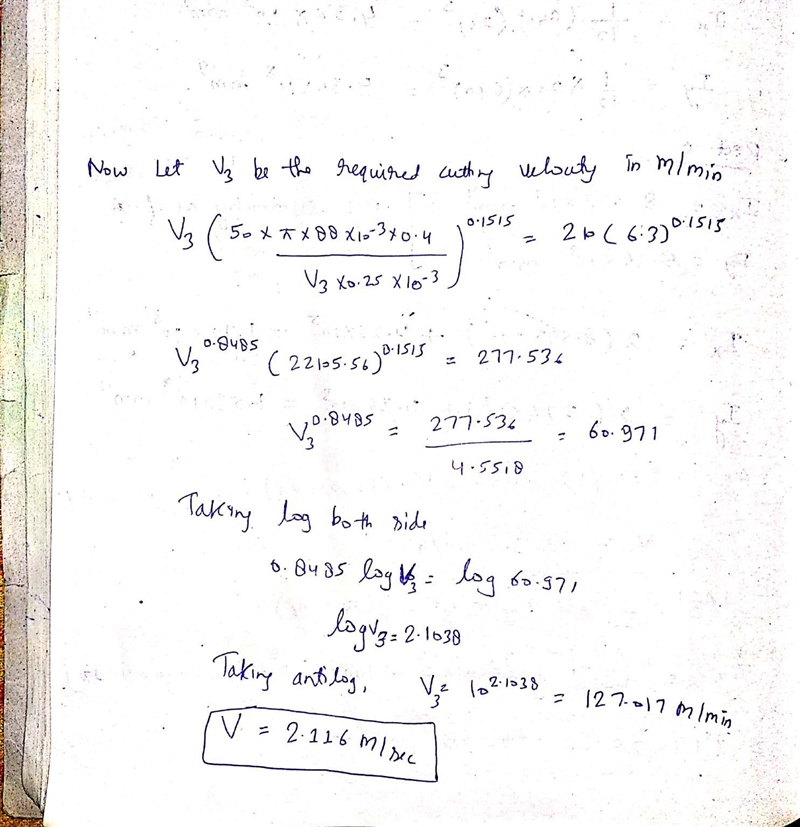 Now Let V₃ be the required cutting velocity in m/min
V₃ (50 × π × 88 × 10⁻³ × 0.4 / V₃ × 0.25 × 10⁻³)^0.1515 = 210 (6.3)^0.1515
V₃^0.8485 (22105.56)^0.1515 = 277.536
V₃^0.8485 = 277.536 / 4.5518 = 60.971
Taking log both side
0.8485 log V₃ = log 60.971
log V₃ = 2.1038
Taking antilog, V₃ = 10^2.1038 = 127.017 m/min
V = 2.116 m/sec